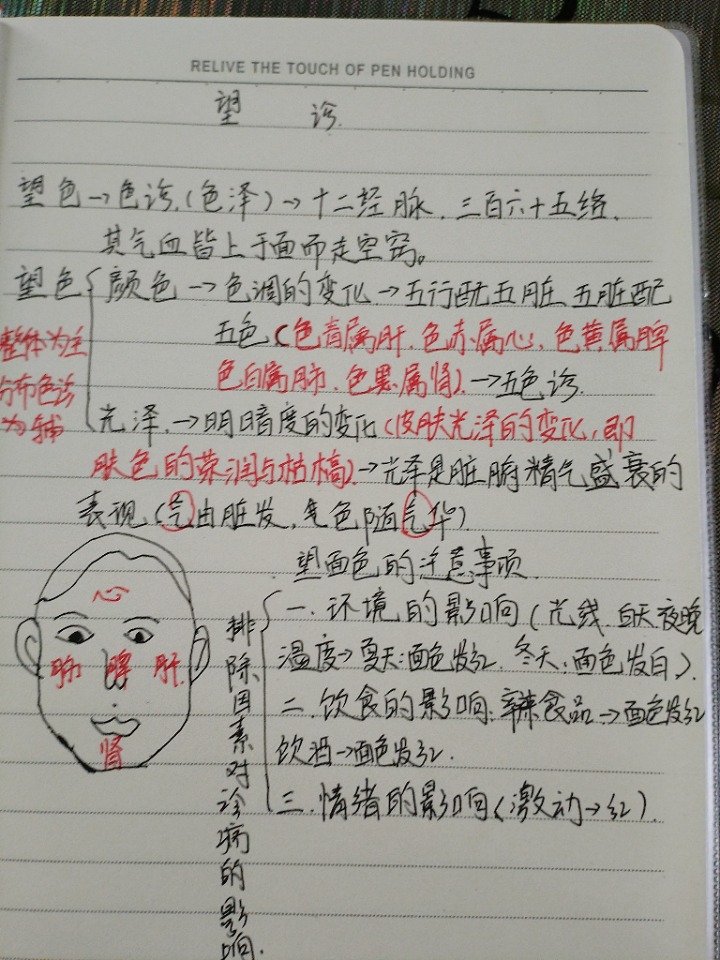 RELIVE THE TOUCH OF PEN HOLDING
望 诊.
望色→色诊,(色泽)→十二经脉,三百六十五络,
其气血皆上于面而走空窍。
望色{颜色→色调的变化→五行配五脏 五脏配
整体为主
分布色诊
为辅
五色(色青属肝,色赤属心,色黄属脾
色白属肺,色黑属肾).→五色诊.
光泽.→明暗度的变化(皮肤光泽的变化,即
肤色的荣润与枯槁).→光泽是脏腑精气盛衰的
表现(气由脏发,色随气华)
望面色的注意事项
心
肺 脾 肝.
肾
排除因素对诊病的影响.
一.环境的影响(光线 白天.夜晚
温度→夏天:面色发红,冬天:面色发白).
二.饮食的影响:辣食品→面色发红
饮酒→面色发红.
三.情绪的影响(激动→红).